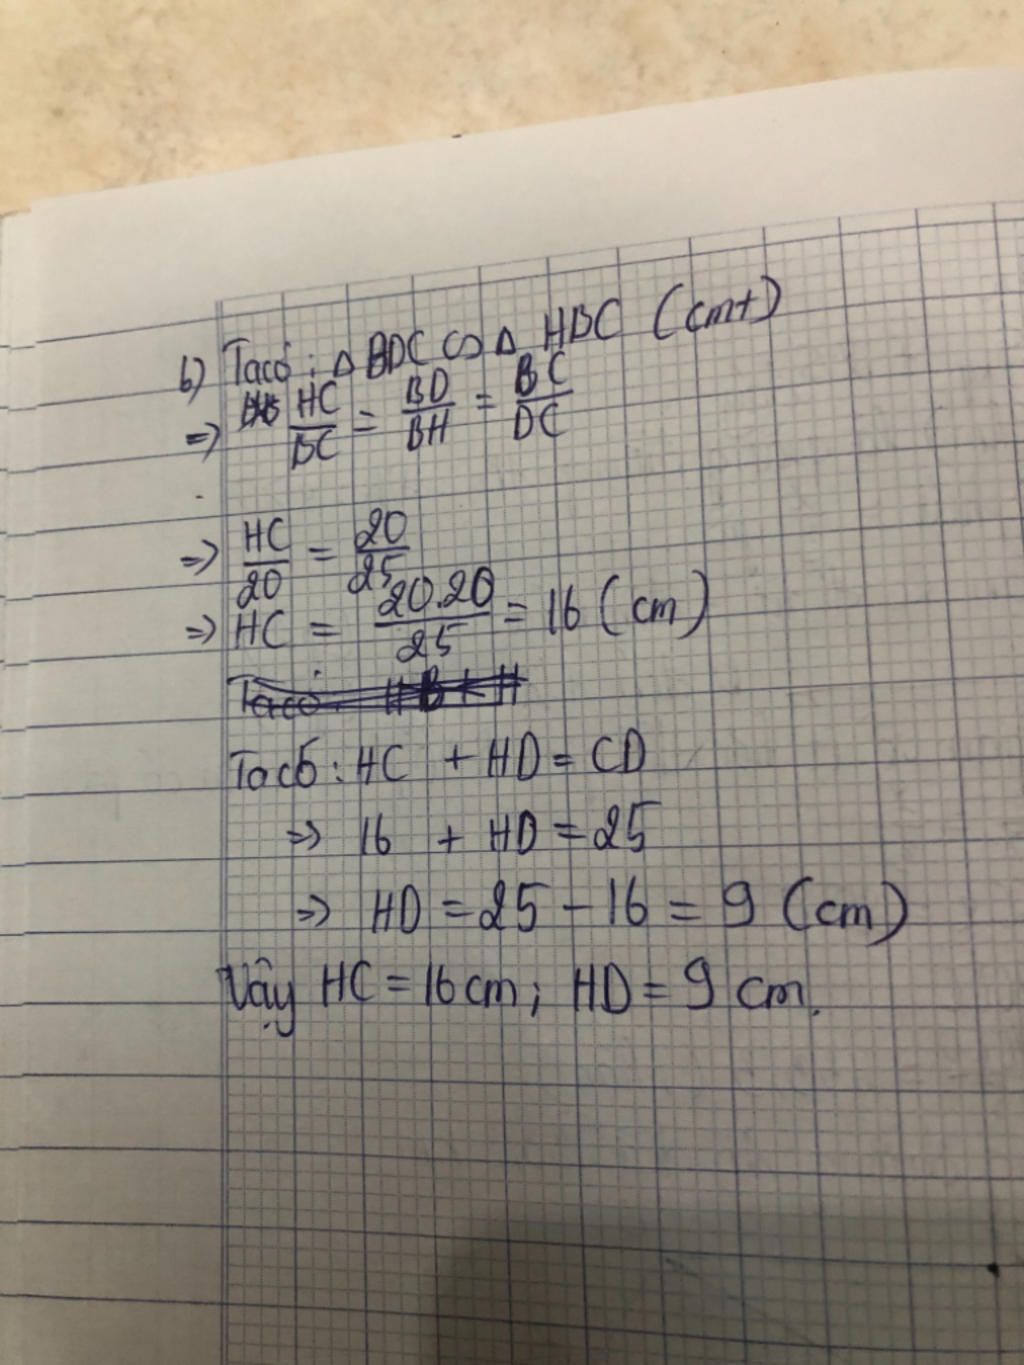 b) Ta có: Δ BDC ∽ Δ HBC (cmt)
=> HC/BC = BD/BH = BC/DC
=> HC/20 = 20/25
=> HC = 20.20/25 = 16 (cm)
Ta có: HC + HD = CD
=> 16 + HD = 25
=> HD = 25 - 16 = 9 (cm)
Vậy HC = 16 cm; HD = 9 cm.